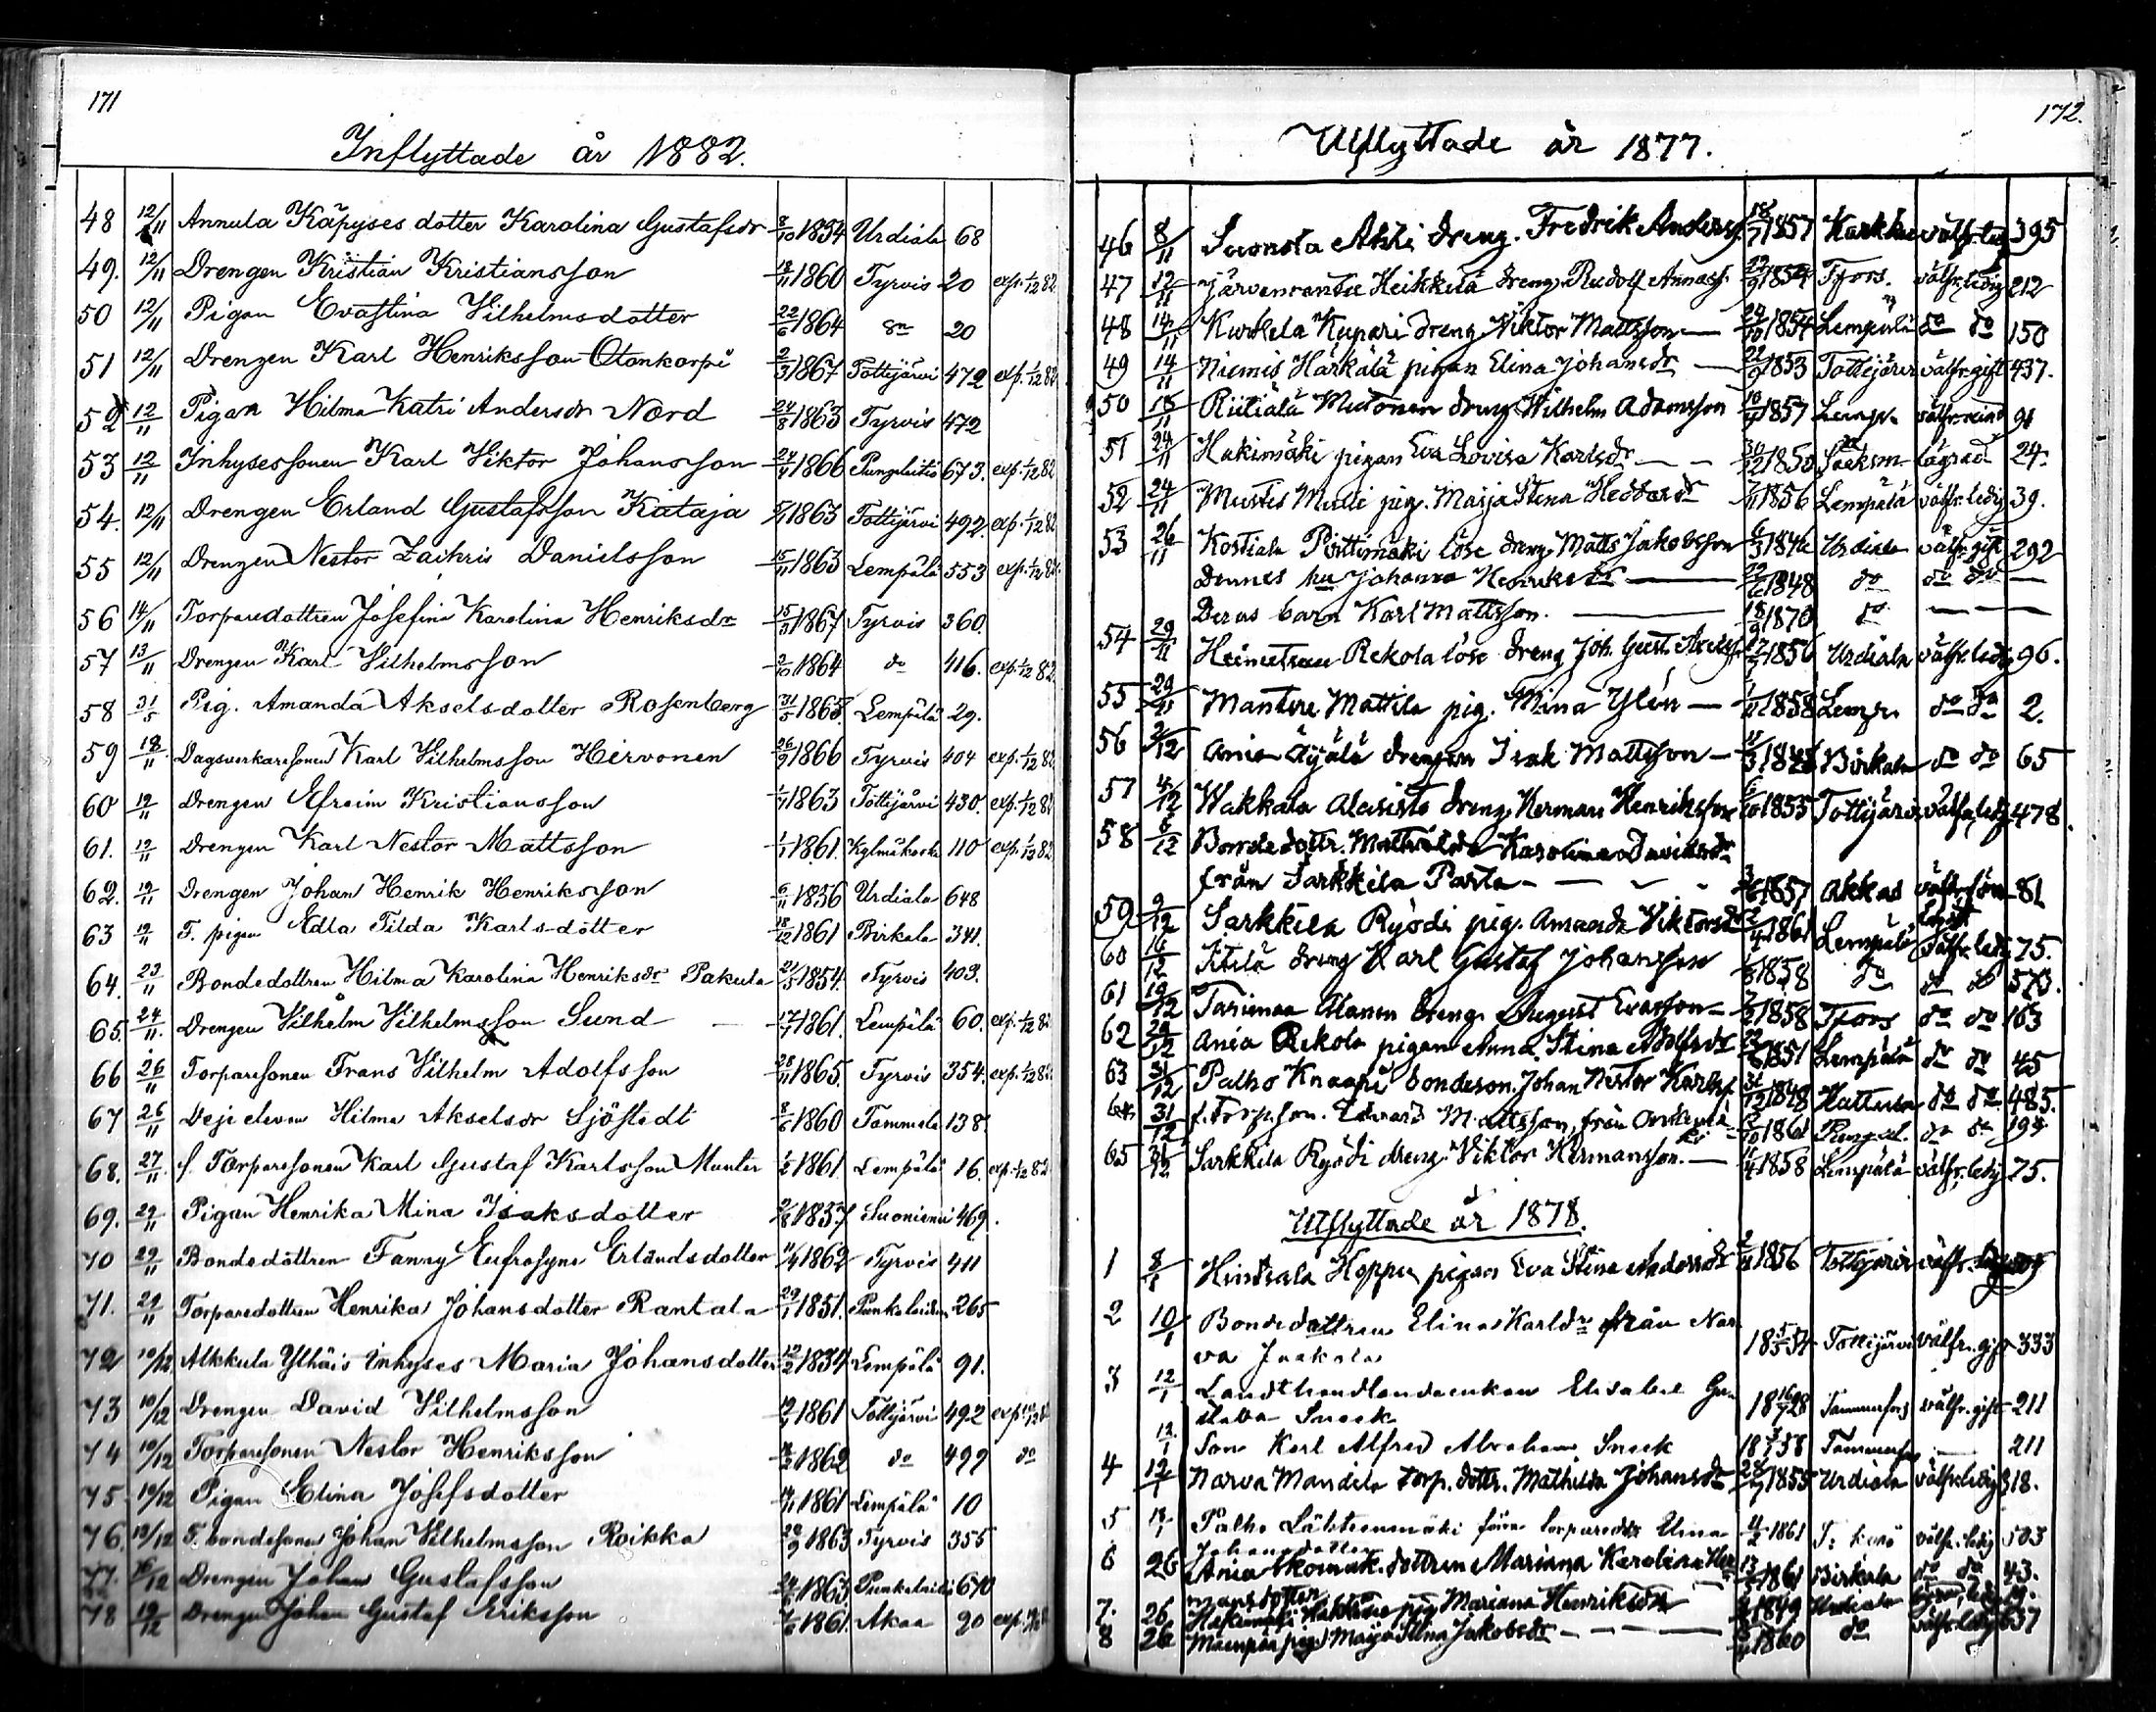 171
Inflyttade år 1882.
48 12/11 Annula Käpyses dotter Karolina Gustafsdr 8/10 1834 Urdiala 68
49. 12/11 Drengen Kristian Kristiansson 1860 Tyrvis 20 exp. 1/12 82
50 12/11 Pigan Evastina Vilhelmsdotter 22/6 1864 dn 20
51 12/11 Drengen Karl Henriksson Otankorpi 2/3 1867 Tottijärvi 472 exp. 1/12 82.
52 12/11 Pigan Hilma Katri Andersdr Nord 24/8 1863 Tyrvis 472
53 12/11 Inhysessonen Karl Viktor Johansson 1866 673. exp. 1/12 82
54. 12/11 Drengen Erland Gustafsson Kataja 1863 Tottijärvi 492. exp. 1/12 82.
55 12/11 Drengen Nestor Zachris Danielsson 15/11 1863 Lempälä 553 exp. 1/12 82.
56 14/11 Torparedottren Josefina Karolina Henriksdr 15/3 1867 Tyrvis 360.
57 13/11 Drengen Karl Vilhelmsson 2/10 1864 do 416. exp. 1/12 82
58 31/5 Pig. Amanda Akselsdotter Rosenberg 31/5 1865 Lempälä 29.
59 18/11 Dagsverkaresonen Karl Vilhelmsson Hirvonen 26/9 1866 Tyrvis 404 exp. 1/12 82
60 19/11 Drengen Efraim Kristiansson 1863 Tottijärvi 430. exp. 1/12 82
61. 19/11 Drengen Karl Nestor Mattsson 1/1 1861. Kylmäkoski 110 exp. 1/12 82
62. 19/11 Drengen Johan Henrik Henriksson 6/11 1836 Urdiala 648
63 19/11 T. pigan Edla Tilda Karlsdotter 18/12 1861 Birkala 341.
64. 23/11 Bondedottren Hilma Karolina Henriksdr Pakula 21/5 1854. Tyrvis 403.
65. 24/11. Drengen Vilhelm Vilhelmsson Sund 17/7 1861. Lempälä 60. exp. 1/12 82
66 26/11 Torparesonen Frans Vilhelm Adolfsson 28/11 1865. Tyrvis 354. exp. 1/12 82.
67 26/11 Deje eleven Hilma Akselsdr Sjöstedt 8/6 1860 Tammela 138.
68. 27/11 f. Torparesonen Karl Gustaf Karlsson Munter 1861 Lempälä 16. exp. 1/12 82
69. 29/11 Pigan Henrika Mina Isaksdotter 1837 Suoniemi 469.
70 29/11 Bondedottren Fanny Eufrosyne Erlandsdotter 11/4 1862 Tyrvis 411
71. 29/11 Torparedottren Henrika Johansdotter Rantala 29/1 1851. 265
72 10/12 Alkkula Ylhäis inhyses Maria Johansdotter 12/2 1834 Lempälä 91.
73 10/12 Drengen David Vilhelmsson 1861 Tottijärvi 492
74 10/12 Torparesonen Nestor Henriksson 1862 do 499 do
75 10/12 Pigan Elina Josefsdotter 1861 Lempälä 10
76. 10/12 T. bondesonen Johan Vilhelmsson Roikka 20/9 1863 Tyrvis 355
77. Drengen Johan Gustafsson 1863 670
78 19/12 Drengen Johan Gustaf Eriksson 1861. Akaa 90
172.
Utflyttade år 1877.
46 8/11 Suonsta Ahli dreng. Fredrik Anderss. 18/7 1857 Karkku välfr. ledig 395
47 12/11 Heikkilä dreng Rudolf Annass. Tfors. välfr. ledig 212
48 14/11 Kurkela Kupari dreng Viktor Mattsson 1854 Lempälä do do 150
49 14/11 Niemis Härkälä pigan Elina Johansdr 1853 Tottijärvi välfr. gift 437.
50 Riitiälä Mutonen dreng Wilhelm Adamsson 1857 Lemp. 91
51 24/11 Hakimäki pigan Eva Lovisa Karlsdr 1850 24.
52 24/11 Mustis Mulli pig. Maija Stina 1856 Lempälä välfr. ledig 39.
53 26/11 Kostiala Pöittimäki löse dreng Matts Jakobsson 1846 Urdiala välfr. gift 292
Dennes hu Johanna Henriksdr 1848 do do do
Deras barn Karl Mattsson. 1870 do
54 29/11 Rekola löse dreng Joh. Gust. 1856 Urdiala välfr. ledig 96.
55 29/11 Mantere Mattila pig. Mina Ylén 1858 Lemp. do do 2.
56 2/12 Ania Äijälä drengen Isak Mattsson Birkala do do 65
57 4/12 Wakkala Alasisto dreng. Herman Henriksson 1855 Tottijärvi välfr. ledig 478.
58 8/12 Bondedottr. Mathilda Karolina Davidsdr
från Sarkkila Parla 1857 Akkas 81
59 9/12 Sarkkila Ryödi pig. Amanda Viktorsdr 1861 Lempälä välfr. ledig 75.
60 16/12 dreng Karl Gustaf Johansson 1858 do do do 570.
61 19/12 Alanen dreng August 1858 Tfors do do 163
62 Ania Rekola pigan Anna Stina Adolfsdr 1851 Lempälä do do 45
63 31/12 Palho Knaapi bondeson Johan Nestor Karlss. 1848 Hattula do do 485.
31/12 f. Torp. son. Edvard Mattsson, från 1861 do do
65 31/12 Sarkkila Ryödi dreng Viktor Hermansson. 1858 Lempälä välfr. ledig 75.
Utflyttade år 1878.
1 8/1 Hintsala Hoppu pigan Eva Stina Andersdr 1856 Tottijärvi välfr.
2 10/1 Bondedottren Elina Karldr från Nar
va Jaakola 1834 Tottijärvi välfr. gift 333
3 12/1 Landthandlandeenkan Elisabet Gu
stava Sneck 1828 Tammerfors välfr. gift 211
12/1 Son Karl Alfred Abraham Sneck 1858 Tammerfors 211
4 12/1 Narva Mandila torp. dottr. Mathilda Johansdr 1855 Urdiala välfr. ledig 318.
5 Palho Lähteenmäki förre torparedotr Elina
Johansdotter 1861 välfr. ledig 503
6 26 Ania dottren Mariana Karolina Her
mansdotter 1861 Birkala do do 43.
7. 26 Hakimäki pig Mariana Henriksdr 1849 Urdiala
8 26 Mäenpää pig. Maija Stina Jakobsdr 1860 do välfr. ledig 637